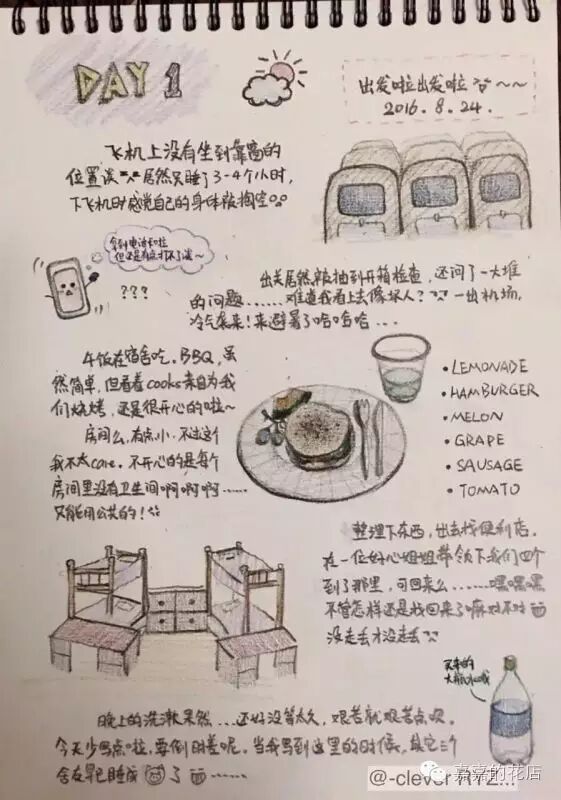 DAY 1
出发啦出发啦~~
2016.8.24.
飞机上没有坐到靠窗的
位置诶 居然只睡了3-4个小时,
下飞机时感觉自己的身体被掏空
拿到电话卡啦
但还是有点打不了诶~
???
出关居然被抽到开箱检查,还问了一大堆
的问题......难道我看上去像坏人? 一出机场,
冷气袭来!来避暑了哈哈哈...
午饭在宿舍吃.BBQ,虽
然简单,但看着cooks亲自为我
们烧烤,还是很开心的啦~
房间么,有点小,不过这个
我不太care.不开心的是每个
房间里没有卫生间啊啊啊......
又能用公共的!
• LEMONADE
• HAMBURGER
• MELON
• GRAPE
• SAUSAGE
• TOMATO
整理下东西,出去找便利店,
在一位好心姐姐带领下我们四个
到了那里,可回来么......嘿嘿嘿
不管怎样还是找回来了嘛对不对
没走丢才没走丢
买来的
大瓶水哦
晚上的洗漱果然...还好没等太久,艰苦就艰苦点呗.
今天少写点啦,要倒时差呢.当我写到这里的时候,其它三个
舍友早已睡成 了
@-clever TYZ...
嘉嘉的花店